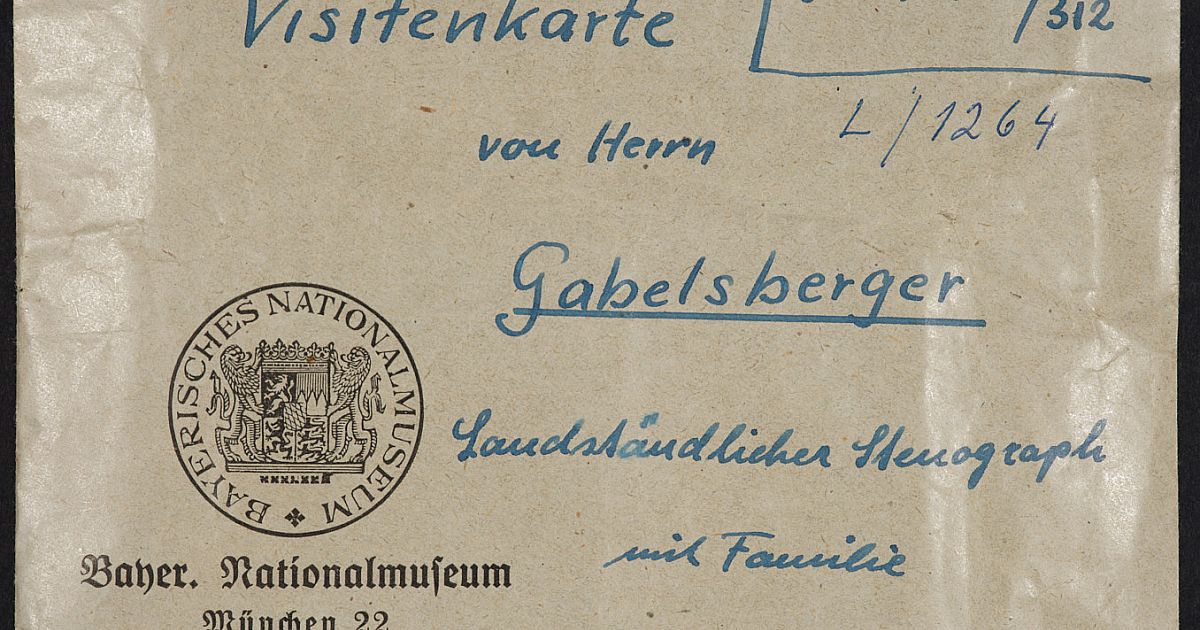 Visitenkarte
/312
L/1264
von Herrn
Gabelsberger
Landständlicher Stenograph
mit Familie
BAYERISCHES NATIONALMUSEUM
Bayer. Nationalmuseum
München 22